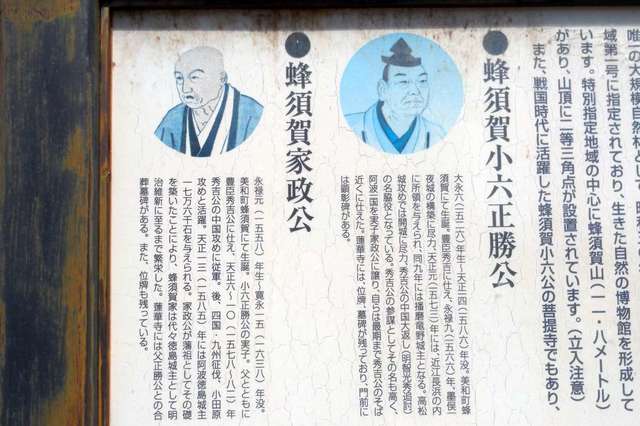 唯一の大規模自然林として
域第一号に指定されており、生きた自然の博物館を形成して
います。特別指定地域の中心に蜂須賀山(一一・八メートル)
があり、山頂に二等三角点が設置されています。(立入注意)
また、戦国時代に活躍した蜂須賀小六公の菩提寺でもあり、
●蜂須賀小六正勝公
大永六(一五二六)年生~天正一四(一五八六)年没。美和町蜂
須賀にて生誕。豊臣秀吉に仕え、永禄九(一五六六)年、墨俣一
夜城の構築に尽力、天正元(一五七三)年には、近江長浜の内
に所領を与えられ、同九年には播磨竜野城主となる。高松
城攻めでは開城に尽力、秀吉公の中国大返し(明智光秀追討)
の名脇役となっている。秀吉公の参謀としてその名も高く、
阿波一国を実子家政公に譲り、自らは最期まで秀吉公のそば
近くに仕えた。蓮華寺には、位牌、墓碑が残っており、門前に
は顕彰碑がある。
●蜂須賀家政公
永禄元(一五五八)年生~寛永一五(一六三八)年没。
美和町蜂須賀にて生誕。小六正勝公の実子。父とともに
豊臣秀吉公に仕え、天正六~一〇(一五七八~八二)年
秀吉公の中国攻めに従軍。後、四国・九州征伐、小田原
攻めと活躍。天正一三(一五八五)年には阿波徳島城主
一七万六千石を与えられる。家政公が藩祖としてその礎
を築いたことにより、蜂須賀家は代々徳島城主として明
治維新に至るまで繁栄した。蓮華寺には父正勝公との合
葬墓碑がある。また、位牌も残っている。